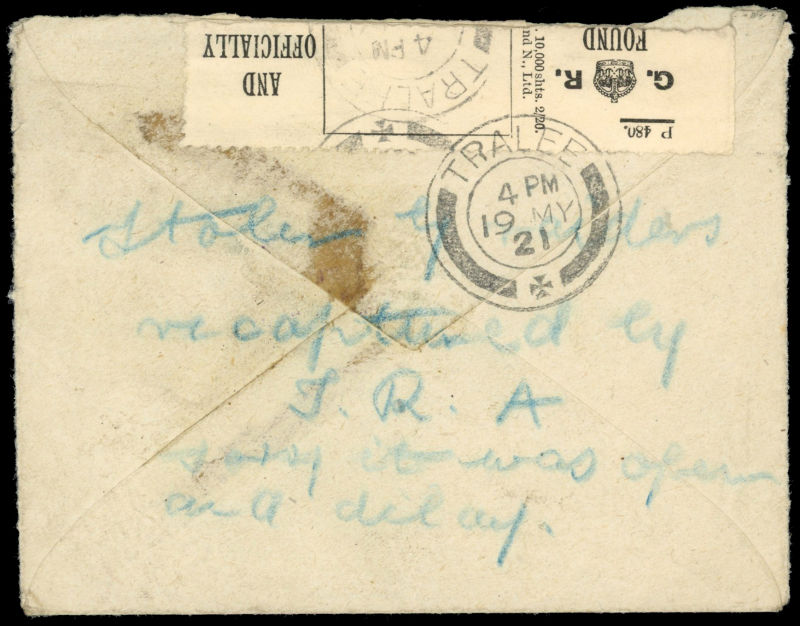 FOUND
G. R.
P 480.
10,000 shts. 2/20.
nd N., Ltd.
AND
OFFICIALLY
TRAL
4 PM
TRALEE
4 PM
19 MY
21
Stolen by raiders
recaptured by
I. R. A
sorry it was open
and delay.